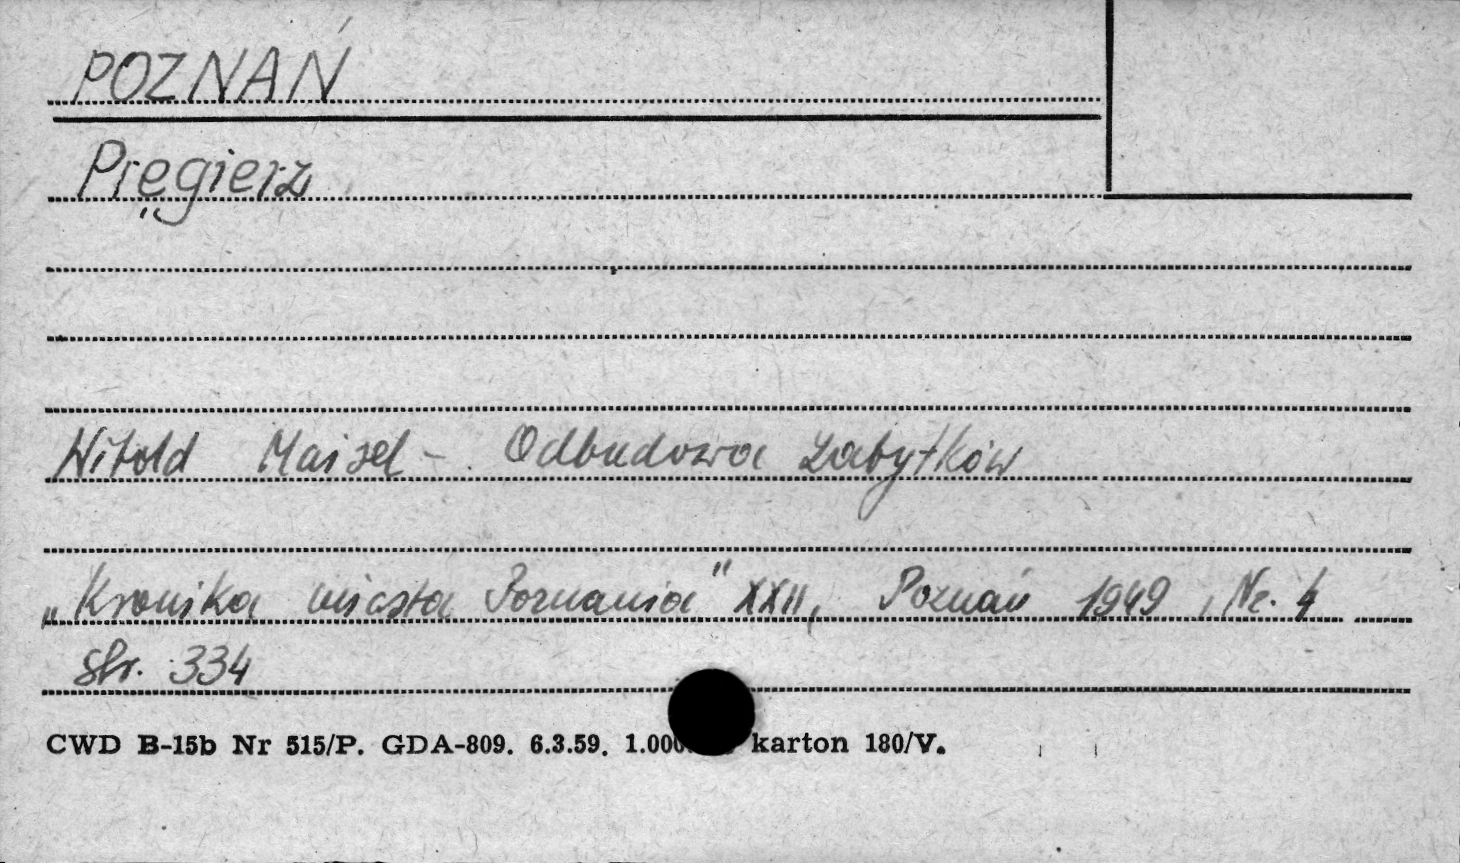 POZNAŃ
Pręgierz
Witold Maisel - Odbudowa zabytków
„Kronika miasta Poznania" XXII, Poznań 1949, Nr. 4
str. 334
CWD B-15b Nr 515/P. GDA-809. 6.3.59. 1.000 karton 180/V.